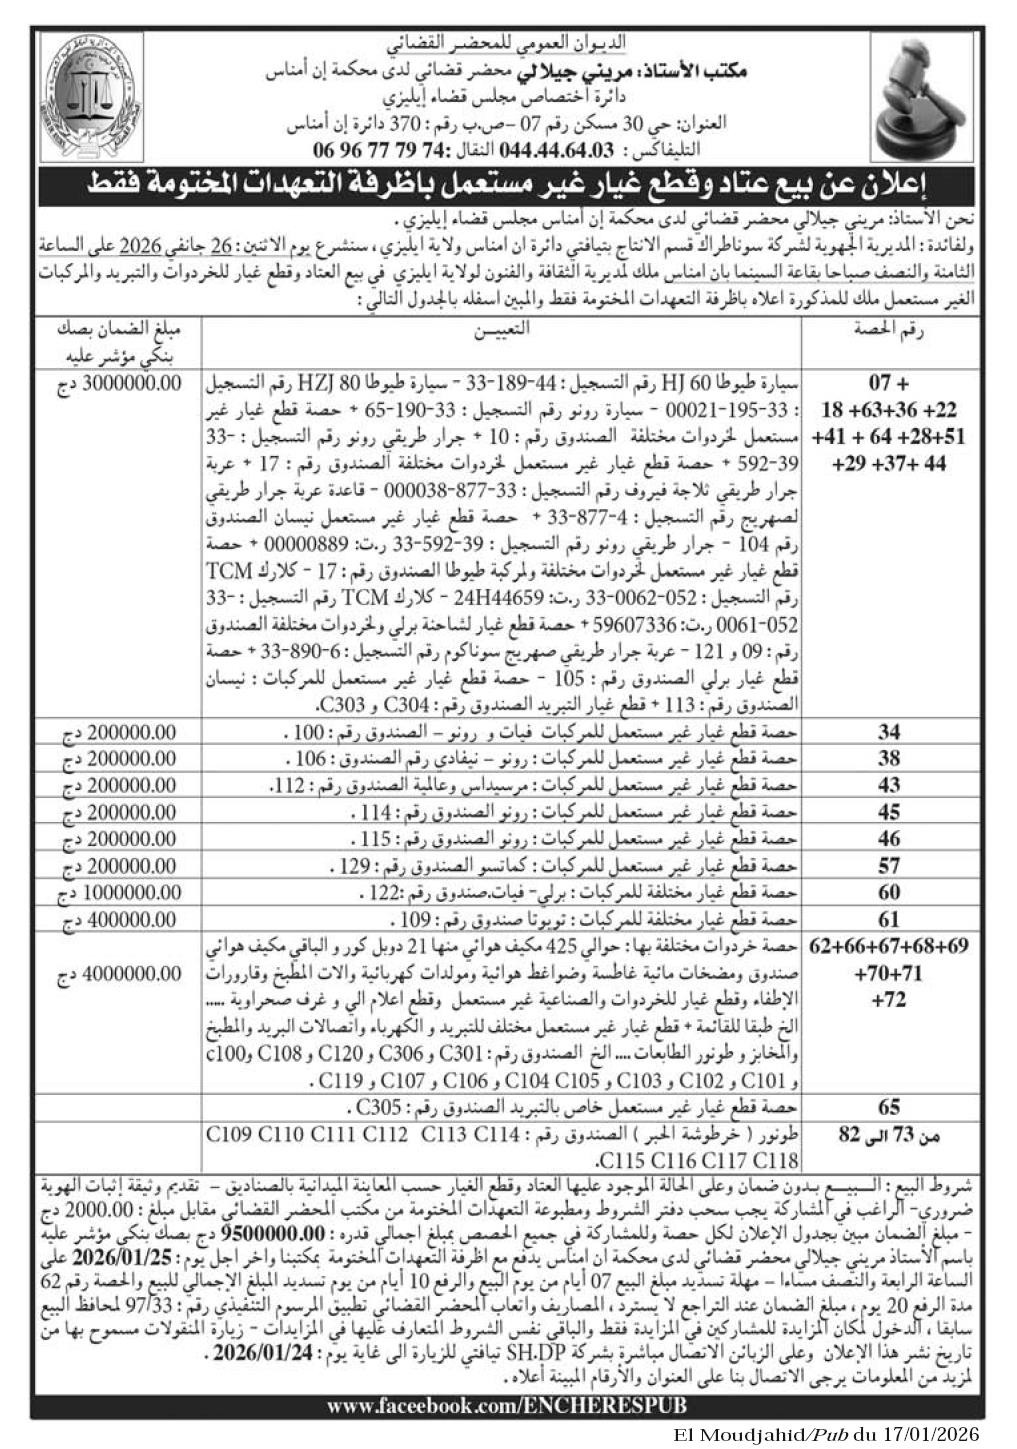 الديوان العمومي للمحضر القضائي
مكتب الأستاذ: مريني جيلالي محضر قضائي لدى محكمة إن أمناس
دائرة اختصاص مجلس قضاء إيليزي
العنوان: حي 30 مسكن رقم 07 –ص.ب رقم: 370 دائرة إن أمناس
التليفاكس: 044.44.64.03 النقال :74 79 77 96 06
إعلان عن بيع عتاد وقطع غيار غير مستعمل باظرفة التعهدات المختومة فقط
نحن الأستاذ: مريني جيلالي محضر قضائي لدى محكمة إن أمناس مجلس قضاء إيليزي .
ولفائدة : المديرية الجهوية لشركة سوناطراك قسم الانتاج بتيافتي دائرة ان امناس ولاية ايليزي ، سنشرع يوم الاثنين: 26 جانفي 2026 على الساعة
الثامنة والنصف صباحا بقاعة السينما بان امناس ملك لمديرية الثقافة والفنون لولاية ايليزي في بيع العتاد وقطع غيار للخردوات والتبريد والمركبات
الغير مستعمل ملك للمذكورة اعلاه باظرفة التعهدات المختومة فقط والمبين اسفله بالجدول التالي:
رقم الحصة
التعييـــن
مبلغ الضمان بصك
بنكي مؤشر عليه
07 +
18 +63+36 +22
+41 + 64 +28+51
+29 +37+ 44
سيارة طيوطا HJ 60 رقم التسجيل : 44-189-33 – سيارة طيوطا HZJ 80 رقم التسجيل
: 33-195-00021 – سيارة رونو رقم التسجيل : 33-190-65 + حصة قطع غيار غير
مستعمل لخردوات مختلفة الصندوق رقم : 10 + جرار طريقي رونو رقم التسجيل : -33
592-39 + حصة قطع غيار غير مستعمل لخردوات مختلفة الصندوق رقم : 17 + عربة
جرار طريقي ثلاجة فيروف رقم التسجيل : 33-877-000038 – قاعدة عربة جرار طريقي
لصهريج رقم التسجيل : 4-877-33 + حصة قطع غيار غير مستعمل نيسان الصندوق
رقم 104 – جرار طريقي رونو رقم التسجيل : 39-592-33 ر.ت: 00000889 + حصة
قطع غيار غير مستعمل لخردوات مختلفة ولمركبة طيوطا الصندوق رقم : 17 – كلارك TCM
رقم التسجيل : 052-0062-33 ر.ت: 24H44659 – كلارك TCM رقم التسجيل : -33
0061-052 ر.ت: 59607336 + حصة قطع غيار لشاحنة برلي ولخردوات مختلفة الصندوق
رقم : 09 و 121 – عربة جرار طريقي صهريج سوناكوم رقم التسجيل : 6-890-33 + حصة
قطع غيار برلي الصندوق رقم : 105 – حصة قطع غيار غير مستعمل للمركبات : نيسان
الصندوق رقم : 113 + قطع غيار التبريد الصندوق رقم : C304 و C303.
3000000.00 دج
34
حصة قطع غيار غير مستعمل للمركبات فيات و رونو – الصندوق رقم : 100 .
200000.00 دج
38
حصة قطع غيار غير مستعمل للمركبات : رونو – نيفادي رقم الصندوق : 106 .
200000.00 دج
43
حصة قطع غيار غير مستعمل للمركبات : مرسيداس وعالمية الصندوق رقم : 112.
200000.00 دج
45
حصة قطع غيار غير مستعمل للمركبات : رونو الصندوق رقم : 114 .
200000.00 دج
46
حصة قطع غيار غير مستعمل للمركبات : رونو الصندوق رقم : 115 .
200000.00 دج
57
حصة قطع غيار غير مستعمل للمركبات : كماتسو الصندوق رقم : 129 .
200000.00 دج
60
حصة قطع غيار مختلفة للمركبات : برلي- فيات.صندوق رقم :122 .
1000000.00 دج
61
حصة قطع غيار مختلفة للمركبات : تويوتا صندوق رقم : 109 .
400000.00 دج
62+66+67+68+69
+70+71
+72
حصة خردوات مختلفة بها : حوالي 425 مكيف هوائي منها 21 دوبل كور و الباقي مكيف هوائي
صندوق ومضخات مائية غاطسة وضواغط هوائية ومولدات كهربائية والات المطبخ وقارورات
الإطفاء وقطع غيار للخردوات والصناعية غير مستعمل وقطع اعلام الي و غرف صحراوية .....
الخ طبقا للقائمة + قطع غيار غير مستعمل مختلف للتبريد و الكهرباء واتصالات البريد والمطبخ
والمخابز و طونور الطابعات .... الخ الصندوق رقم : C301 و C306 و C120 و C108 وc100
و C101 و C102 و C103 و C104 C105 و C106 و C107 و C119 .
4000000.00 دج
65
حصة قطع غيار غير مستعمل خاص بالتبريد الصندوق رقم : C305 .
من 73 الى 82
طونور ( خرطوشة الحبر ) الصندوق رقم : C109 C110 C111 C112 C113 C114
C115 C116 C117 C118.
شروط البيع : الـــبيـــع بـدون ضمان وعلى الحالة الموجود عليها العتاد وقطع الغيار حسب المعاينة الميدانية بالصناديق – تقديم وثيقة إثبات الهوية
ضروري- الراغب في المشاركة يجب سحب دفتر الشروط ومطبوعة التعهدات المختومة من مكتب المحضر القضائي مقابل مبلغ : 2000.00 دج
– مبلغ الضمان مبين بجدول الإعلان لكل حصة وللمشاركة في جميع الحصص بمبلغ اجمالي قدره : 9500000.00 دج بصك بنكي مؤشر عليه
باسم الأستاذ مريني جيلالي محضر قضائي لدى محكمة ان امناس يدفع مع اظرفة التعهدات المختومة بمكتبنا واخر اجل يوم : 2026/01/25 على
الساعة الرابعة والنصف مساءا – مهلة تسديد مبلغ البيع 07 أيام من يوم البيع والرفع 10 أيام من يوم تسديد المبلغ الإجمالي للبيع والحصة رقم 62
مدة الرفع 20 يوم ، مبلغ الضمان عند التراجع لا يسترد ، المصاريف واتعاب المحضر القضائي تطبيق المرسوم التنفيذي رقم : 97/33 لمحافظ البيع
سابقا ، الدخول لمكان المزايدة للمشاركين في المزايدة فقط والباقي نفس الشروط المتعارف عليها في المزايدات – زيارة المنقولات مسموح بها من
تاريخ نشر هذا الإعلان وعلى الزبائن الاتصال مباشرة بشركة SH.DP تيافتي للزيارة الى غاية يوم : 2026/01/24 .
لمزيد من المعلومات يرجى الاتصال بنا على العنوان والأرقام المبينة أعلاه .
www.faceebook.com/ENCHERESPUB
El Moudjahid/Pub du 17/01/2026